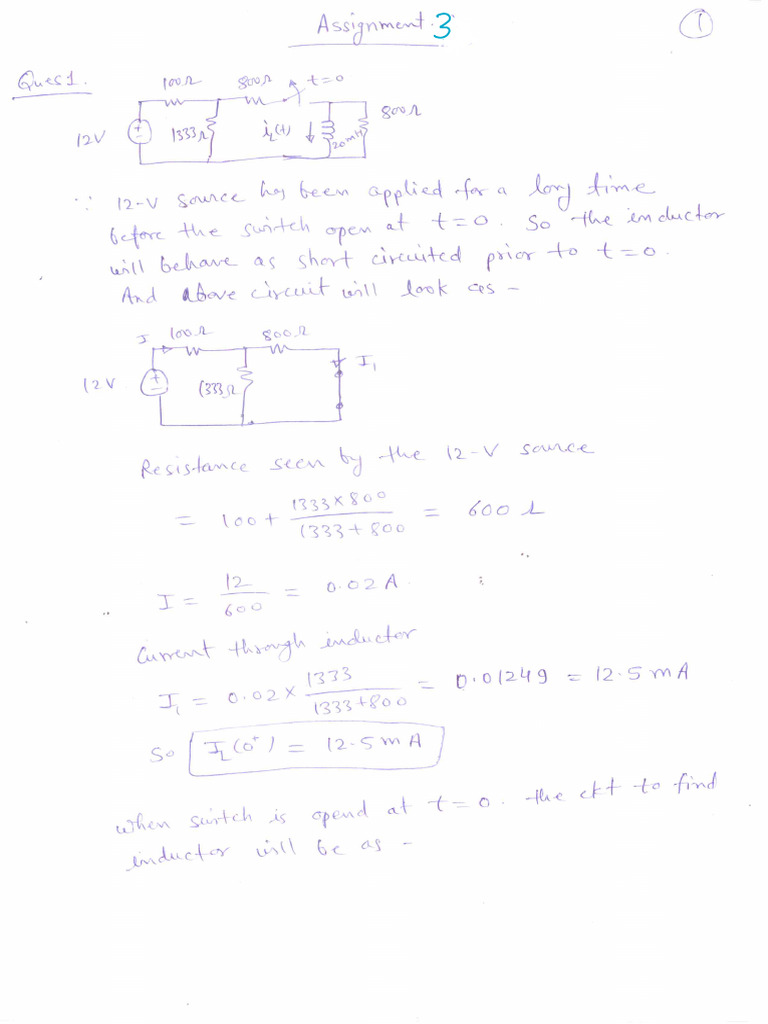 Assignment 3
1
Ques 1.
100Ω 800Ω t=0
12V 1333Ω iL(t) 20mH 800Ω
∵ 12-V source has been applied for a long time
before the switch open at t=0. So the inductor
will behave as short circuited prior to t=0.
And above circuit will look as -
I 100Ω 800Ω
12V 1333Ω I1
Resistance seen by the 12-V source
= 100 + 1333×800 / 1333+800 = 600 Ω
I = 12 / 600 = 0.02 A.
Current through inductor
I1 = 0.02 × 1333 / 1333+800 = 0.01249 = 12.5 mA
So IL(0+) = 12.5 mA
When switch is opend at t=0. the ckt to find
inductor will be as -